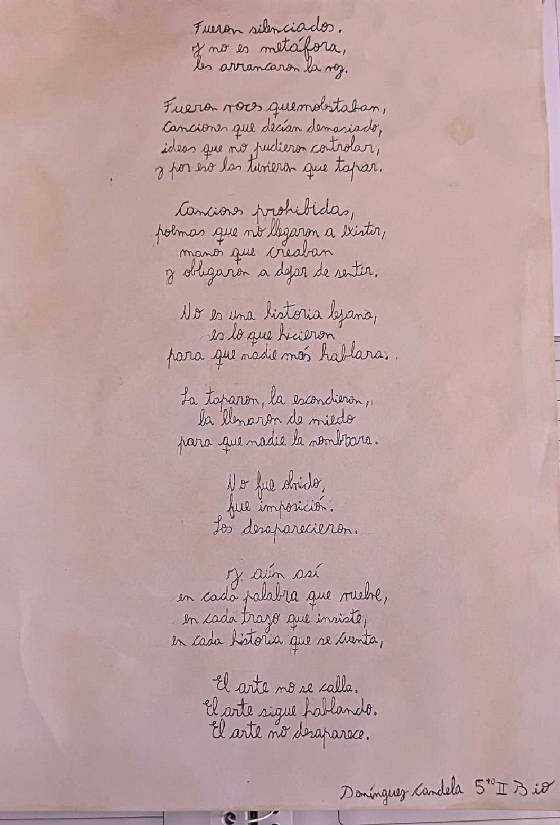 Fueron silenciados.
y no es metáfora,
les arrancaron la voz.
Fueron voces que molestaban,
canciones que decían demasiado,
ideas que no pudieron controlar,
y por eso las tuvieron que tapar.
Canciones prohibidas,
poemas que no llegaron a existir,
manos que creaban
y obligaron a dejar de sentir.
No es una historia lejana,
es lo que hicieron
para que nadie más hablara.
La taparon, la escondieron,
la llenaron de miedo
para que nadie la nombrara.
No fue olvido,
fue imposición.
Los desaparecieron.
y aún así
en cada palabra que vuelve,
en cada trazo que insiste,
en cada historia que se cuenta,
El arte no se calla.
El arte sigue hablando.
El arte no desaparece.
Domínguez Candela 5to II B io